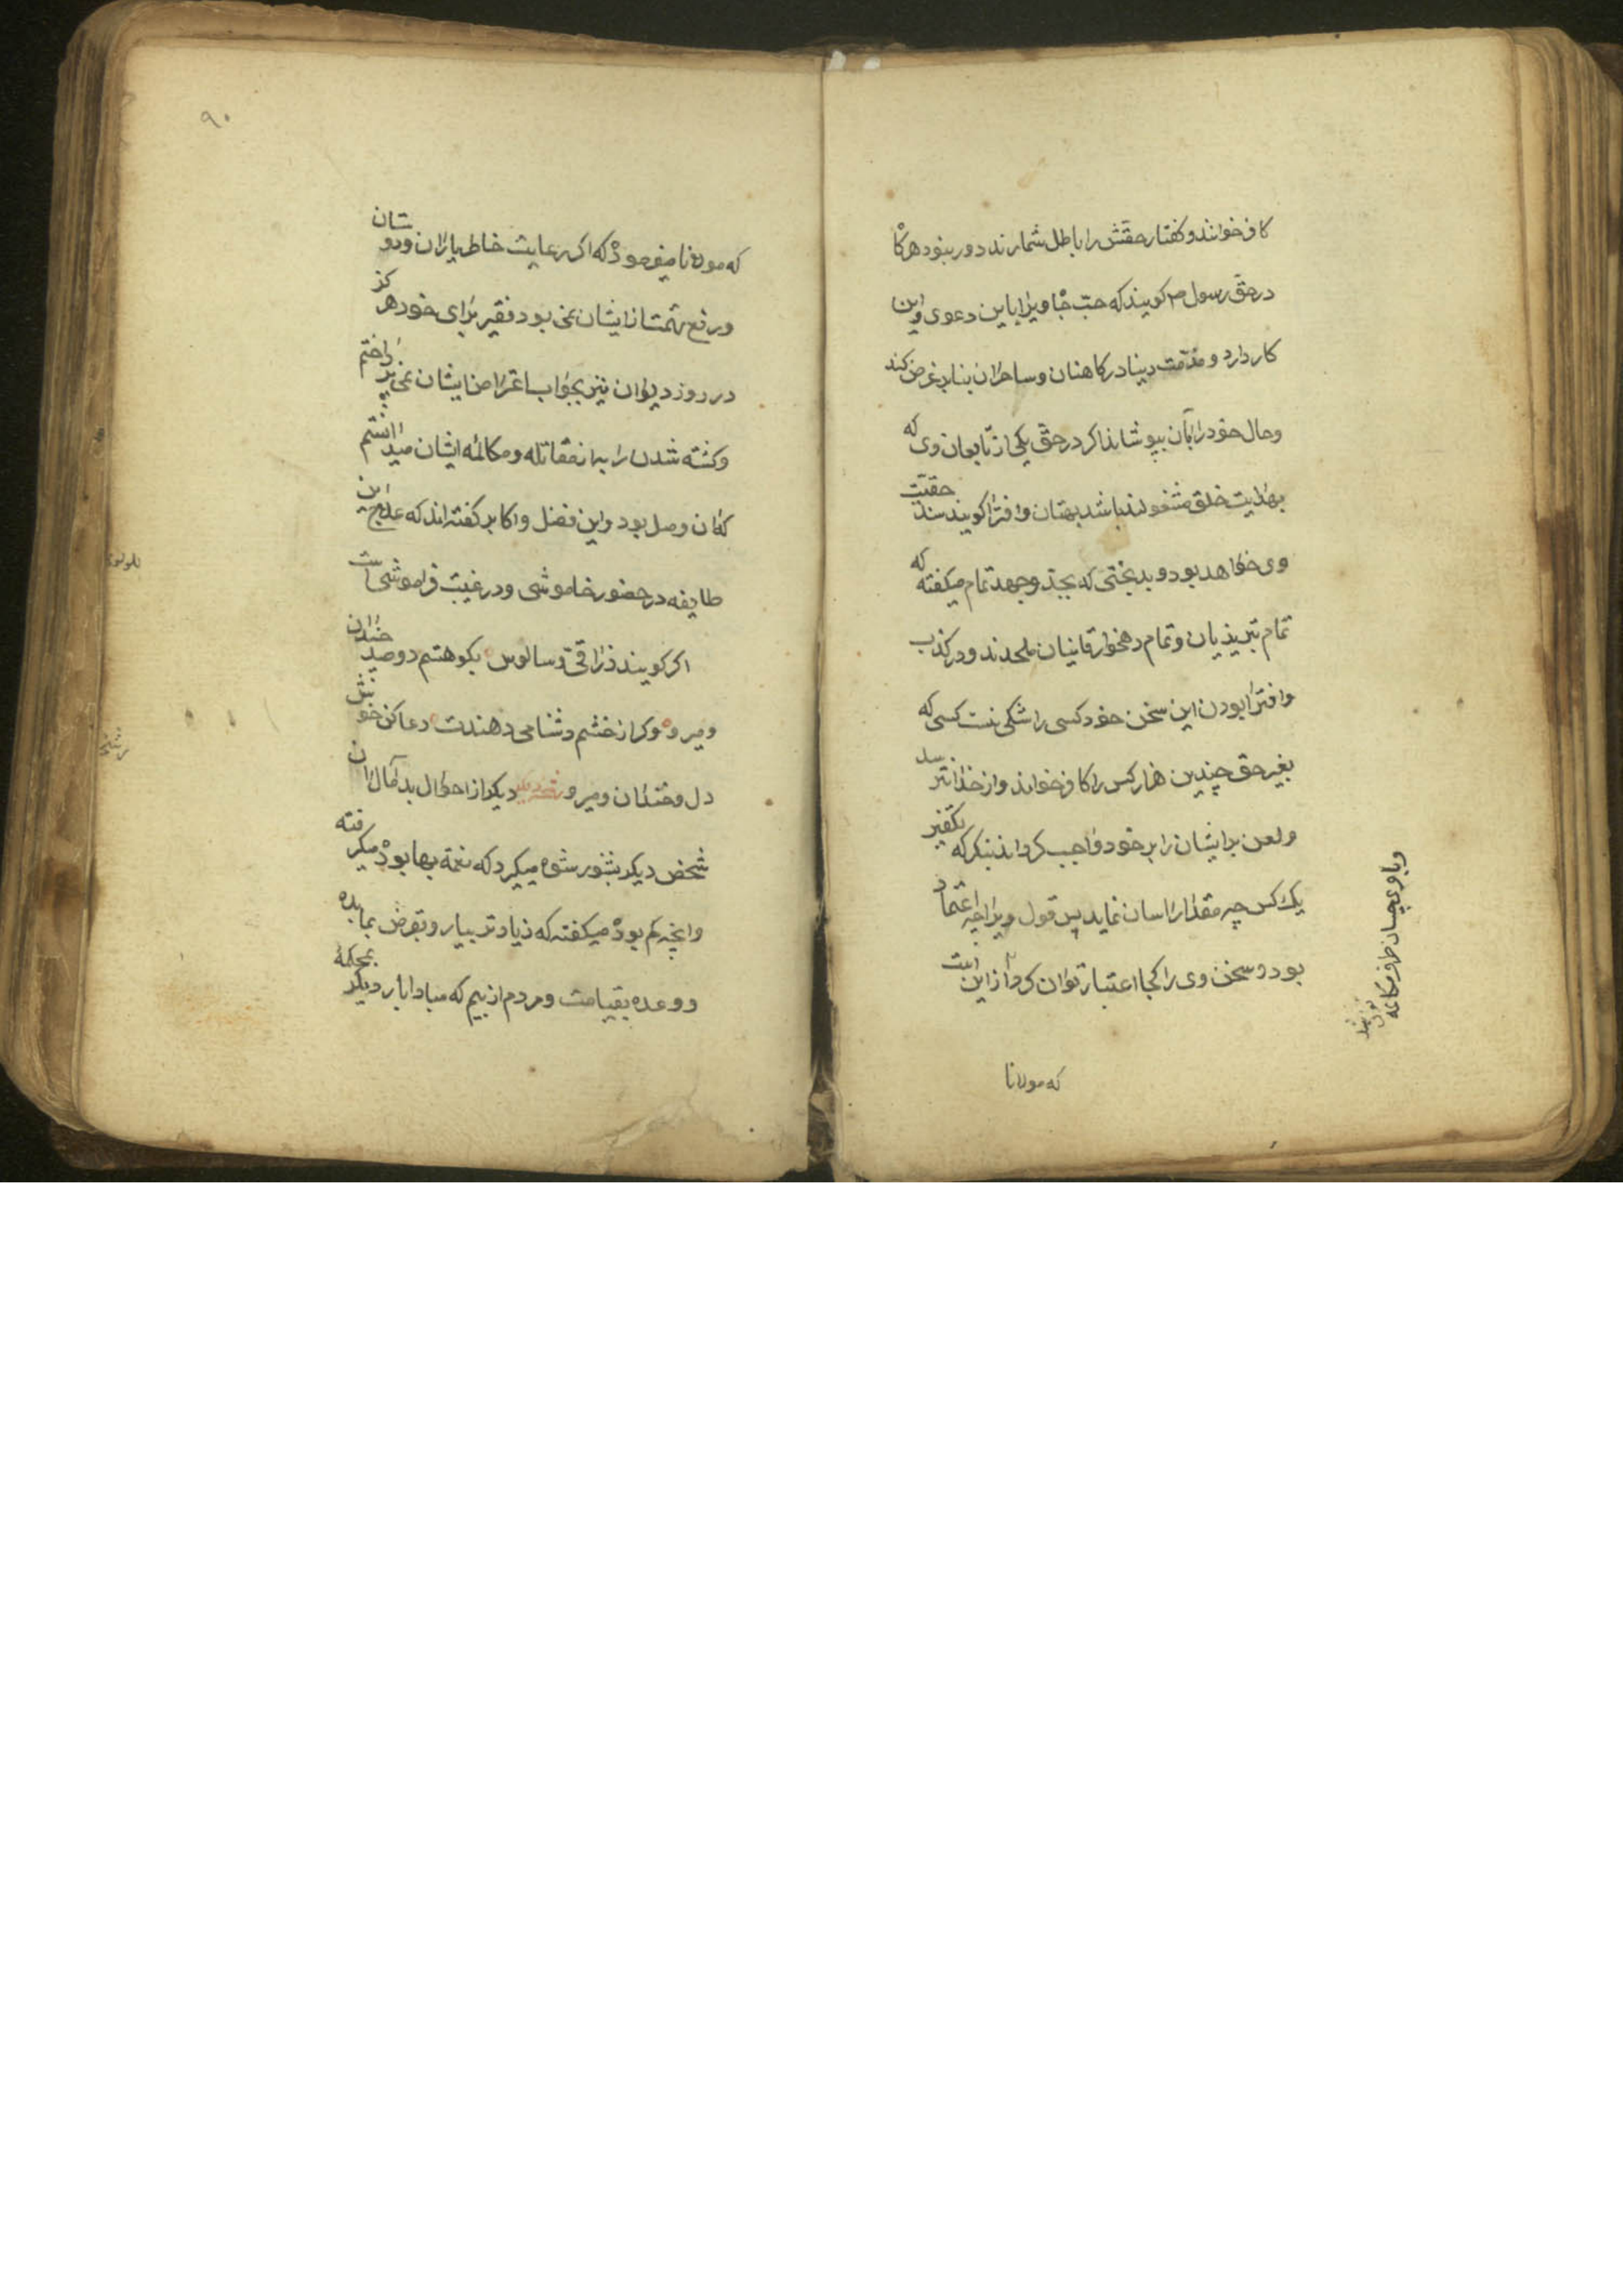 کافر خوانند و کفتار حقش را باطل شمارند دور نبود هرکا
در حق رسول م کویند که حب جاه ویرا باین دعوی و این
کار دارد و مذمت دینا در کاهنان و ساحران بنابر غرض کند
وحال خود را بآن بپوشاند اکر در حق یکی از تابعان وی که
بهدایت خلق مشغول باشد بهتان و افترا کویند سند حقیّت
وی خواهد بود و بدبختی که بجد و جهد تمام میکفته که
تمام تبریزیان و تمام دهخوارقانیان ملحدند و در کذب
و افترا بودن این سخن خود کسی را شکی نیست کسی که
بغیر حق چندین هزار کس را کافر خواند و از خدا نترسد
و لعن بر ایشان را بر خود واجب کرداند بنکر که بتکفیر
یک کس چه مقدار اسان نماید پس قول ویرا چه اعتماد
بود و سخن وی را کجا اعتبار توان کرد از این است
که مولانا
۹۰
که مولانا میفرمود که اکر رعایت خاطر یاران و دوستان
و رفع تهمت از ایشان نمی بود فقیر برای خود هرکز
در روز دیوان نیز بجواب اعتراض ایشان نمی پرداختم
و کشته شدن را به از مقاتله و مکالمه ایشان میدانستم
که آن وصل بود و این فصل و اکابر کفته اند که علاج این
طایفه در حضور خاموشی و در غیبت فراموشی است
اکر کویند زراقی و سالوس بکو هستم دو صد چندان
و میرو و کر از خشم دشنامی دهندت دعا کن خوش
دل و خندان و میرو دیکر از احوال بد مآل ان
شخص دیکر بشنو رشوه میکرد که نیمه بها بود میکرفته
و انچه کم بود میکفته که زیادتر بیار و بقرض بما بده
و وعده بقیامت و مردم از بیم که مبادا بار دیکر بمحکمهٔ